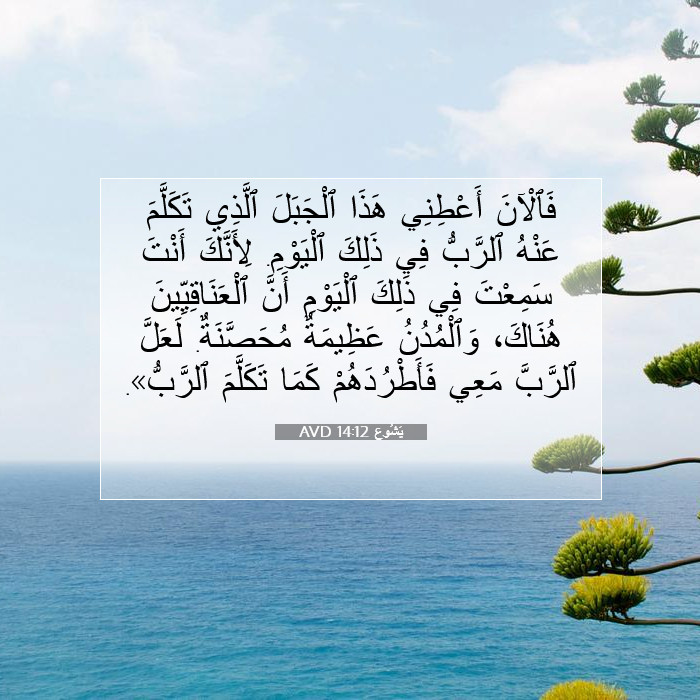 فَٱلْآنَ أَعْطِنِي هَذَا ٱلْجَبَلَ ٱلَّذِي تَكَلَّمَ
عَنْهُ ٱلرَّبُّ فِي ذَلِكَ ٱلْيَوْمِ. لِأَنَّكَ أَنْتَ
سَمِعْتَ فِي ذَلِكَ ٱلْيَوْمِ أَنَّ ٱلْعَنَاقِيِّينَ
هُنَاكَ، وَٱلْمُدُنُ عَظِيمَةٌ مُحَصَّنَةٌ. لَعَلَّ
ٱلرَّبَّ مَعِي فَأَطْرُدَهُمْ كَمَا تَكَلَّمَ ٱلرَّبُّ».
يَشُوع 14:12 AVD